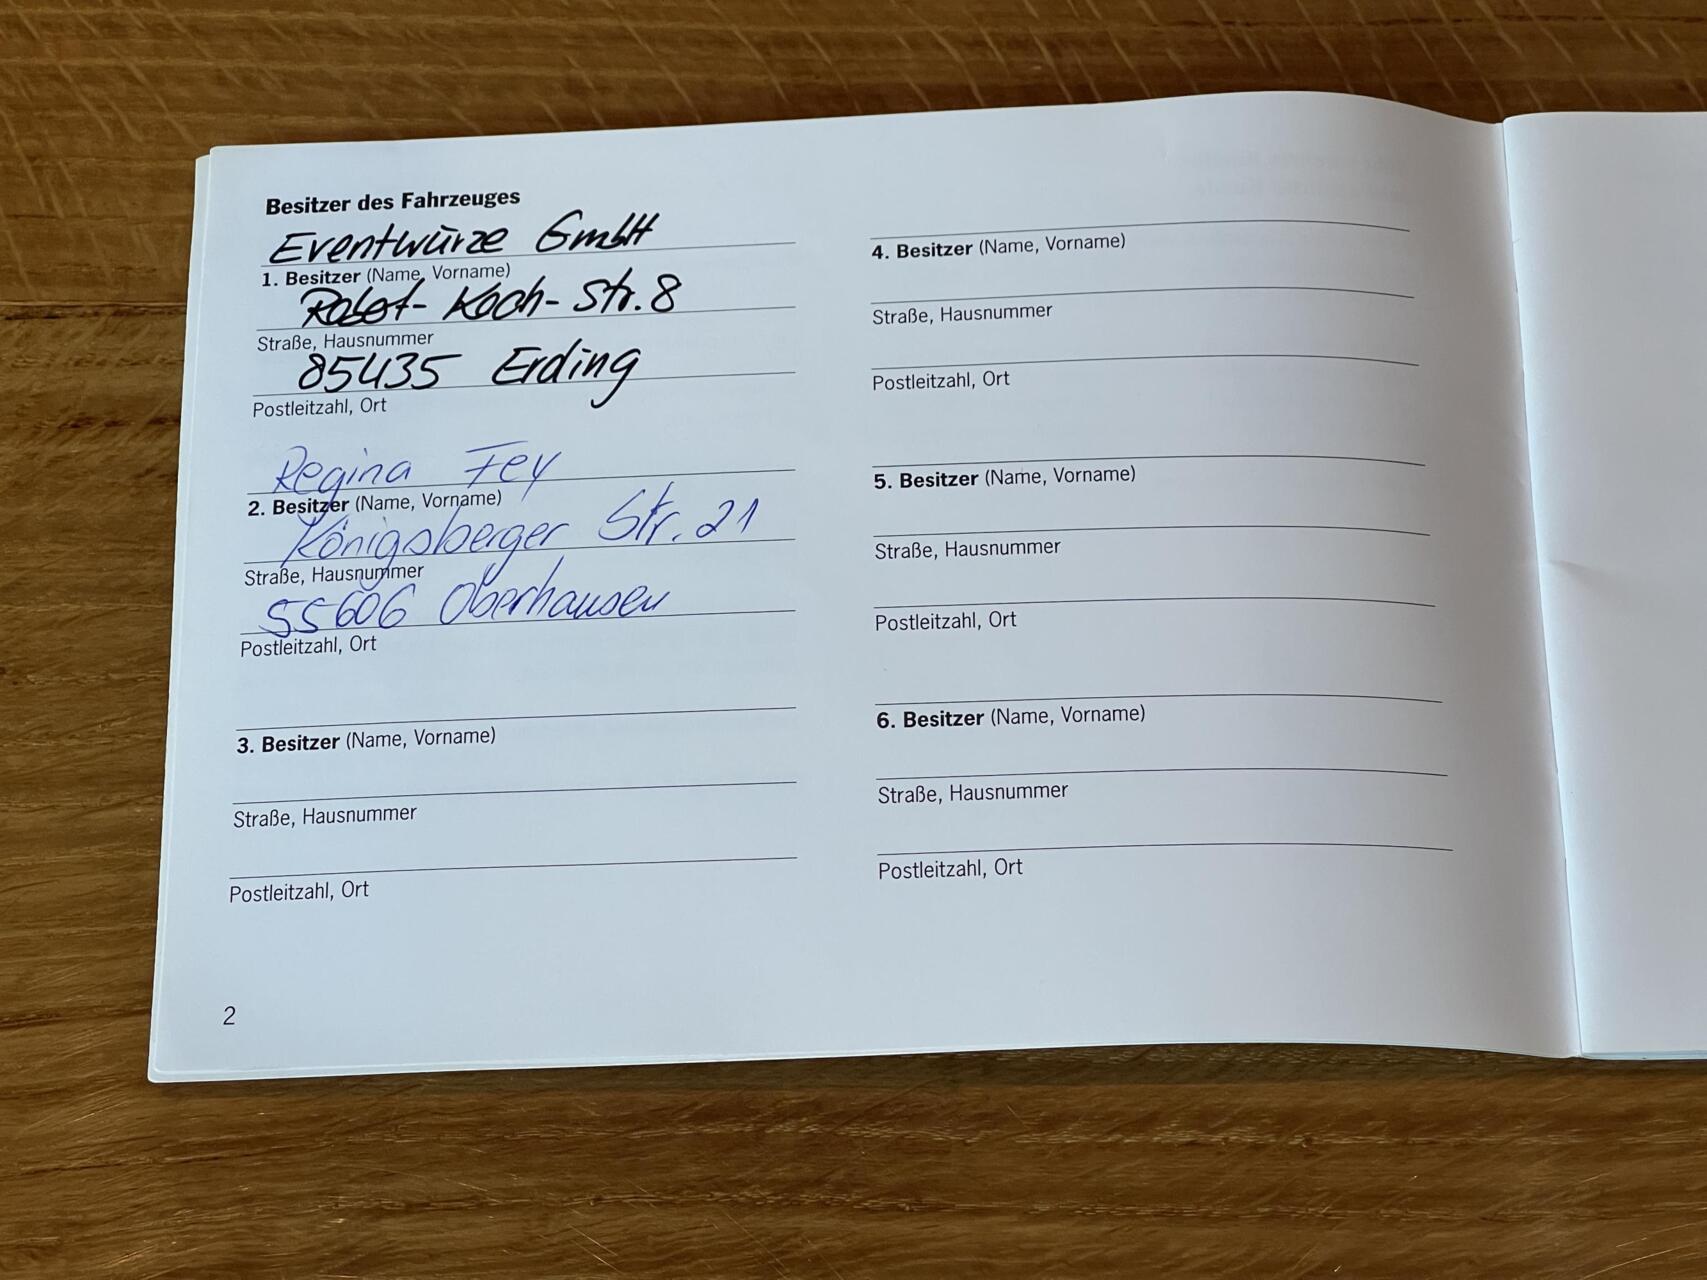 Besitzer des Fahrzeuges
Eventwürze GmbH
1. Besitzer (Name, Vorname)
Koch- Str. 8
Straße, Hausnummer
85435 Erding
Postleitzahl, Ort
Regina Fey
2. Besitzer (Name, Vorname)
Königsberger Str. 21
Straße, Hausnummer
55606 Oberhausen
Postleitzahl, Ort
3. Besitzer (Name, Vorname)
Straße, Hausnummer
Postleitzahl, Ort
4. Besitzer (Name, Vorname)
Straße, Hausnummer
Postleitzahl, Ort
5. Besitzer (Name, Vorname)
Straße, Hausnummer
Postleitzahl, Ort
6. Besitzer (Name, Vorname)
Straße, Hausnummer
Postleitzahl, Ort
2